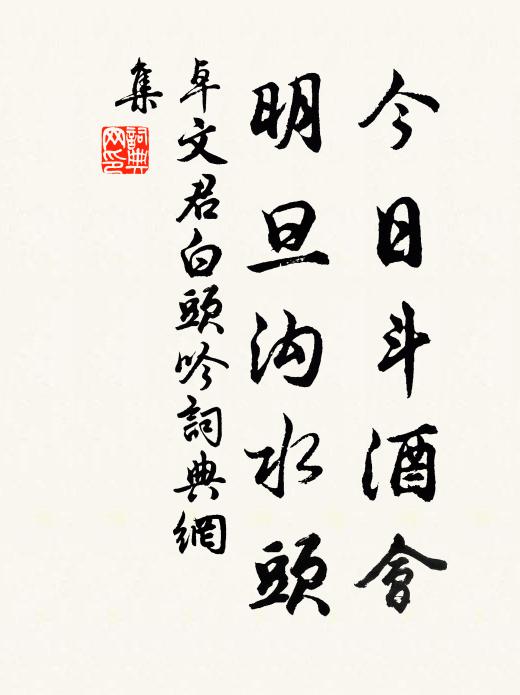 今日斗酒會
明旦沟水頭
卓文君白頭吟詞典網
集
詞典
网印